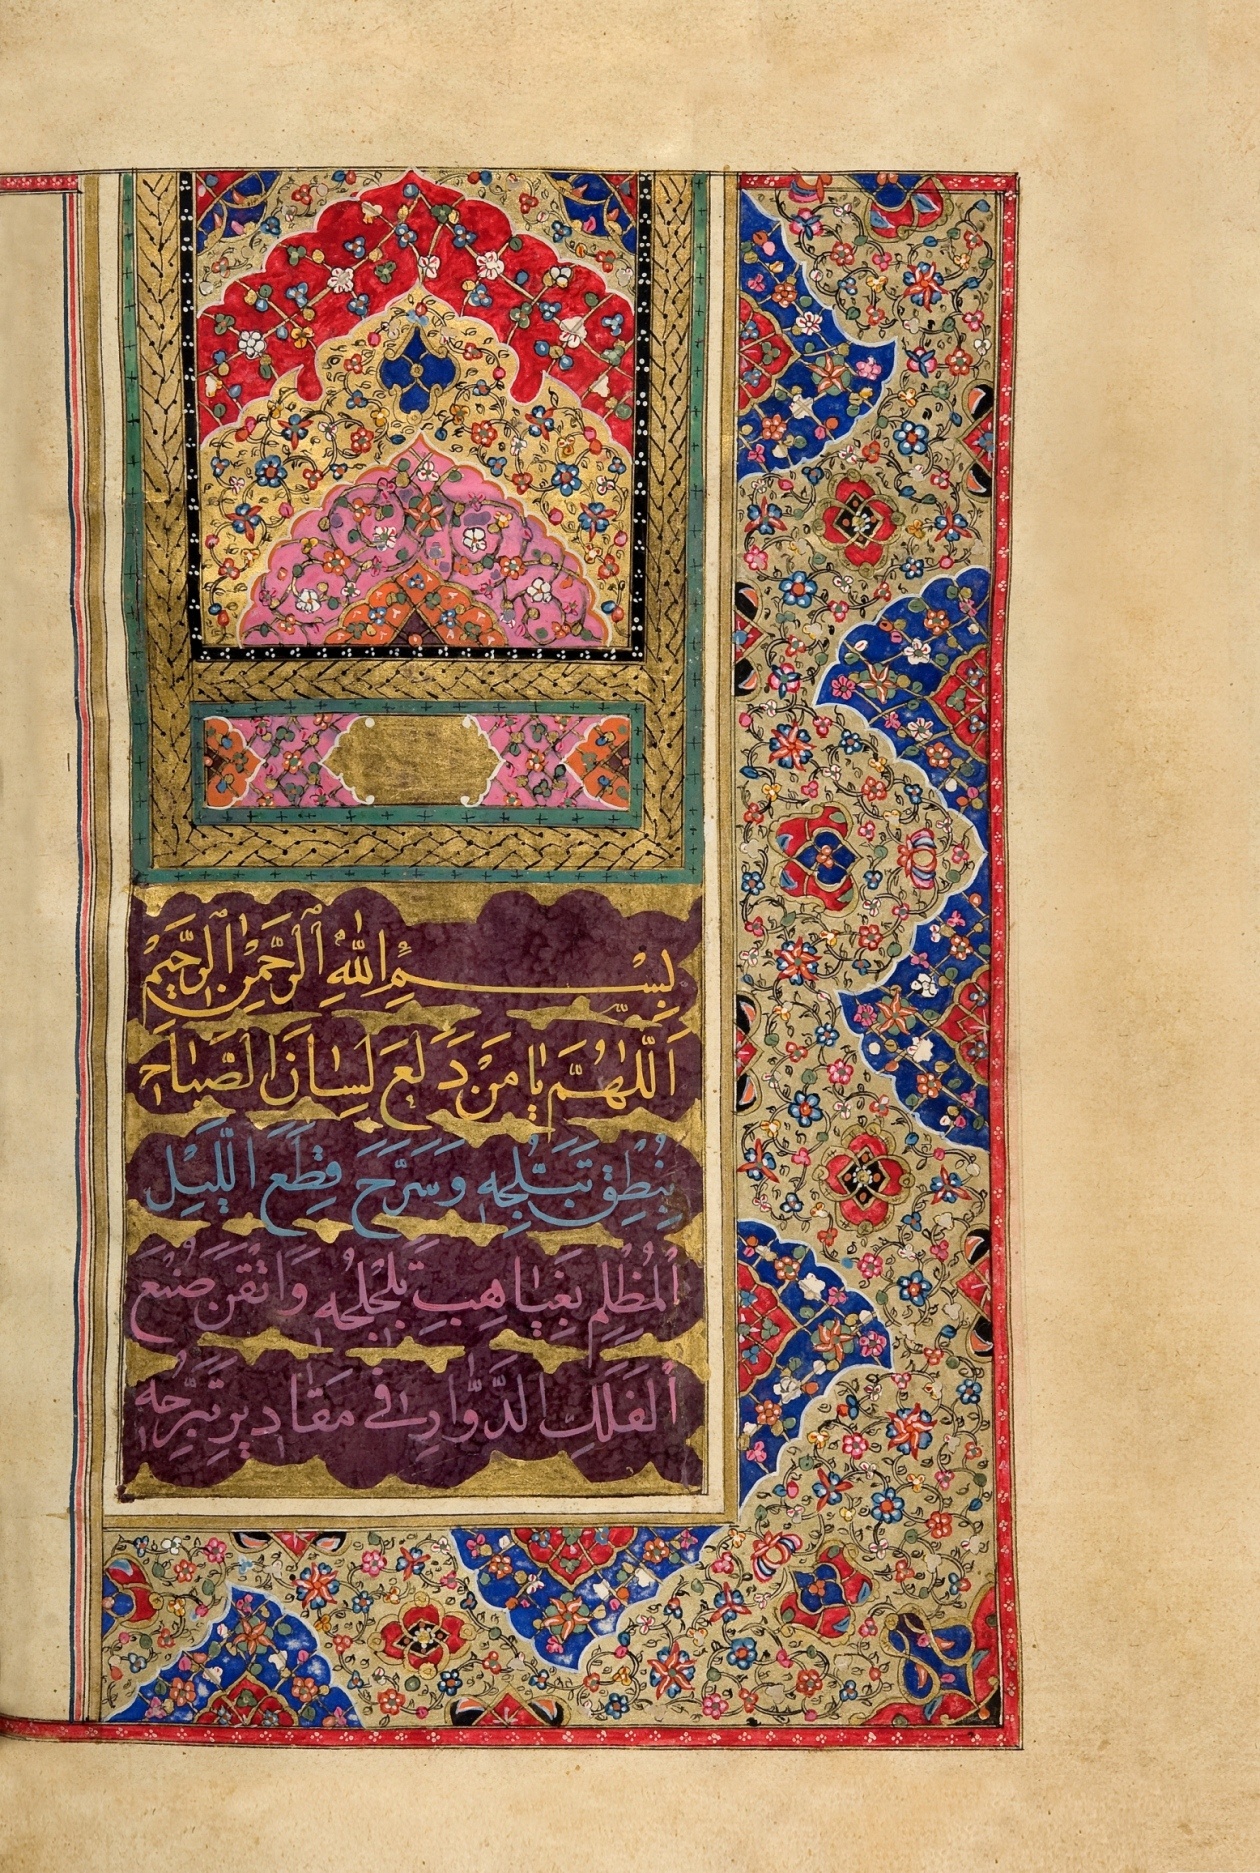 بِسْمِ اللّٰهِ الرَّحْمٰنِ الرَّحِيْمِ
اَللّٰهُمَّ يٰا مَنْ دَلَعَ لِسٰانَ الصَّبٰاحِ
بِنُطْقِ تَبَلُّجِهِ وَسَرَّحَ قِطَعَ اللَّيْلِ
الْمُظْلِمِ بِغَيٰاهِبِ تَلَجْلُجِهِ وَاَتْقَنَ صُنْعَ
الْفَلَكِ الدَّوّٰارِ فى مَقٰاديرِ تَبَرُّجِهِ